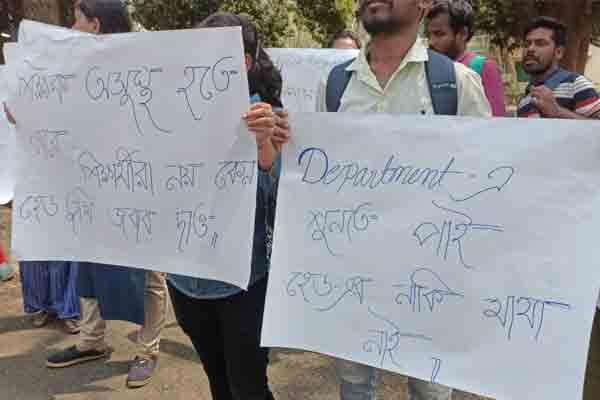 অসুস্থ হতে
পারে
শিক্ষার্থীরা নয় কেন
হেড দিদি জবাব দাও॥
Department-এ
শুনতে পাই
হেড-এর নাকি মাথা
নাই॥